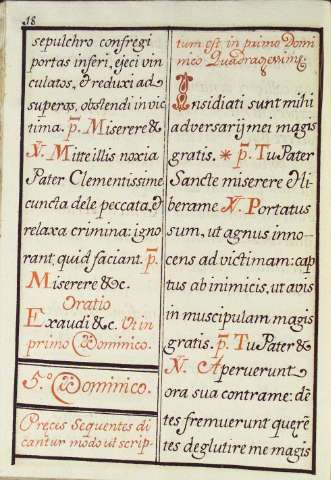 18
sepulchro confregi
portas inferi, ejeci vin
culatos, & reduxi ad
superos, ostendi in vic
tima. p̄. Miserere &
V. Mitte illis noxia
Pater Clementissime
cuncta dele peccata, &
relaxa crimina: igno
rant, quid faciant. p̄.
Miserere &c.
Oratio
Exaudi &c. Ut in
primo Dominico.
5.º Dominico.
Preces Sequentes di
cantur mōdo ut scrip-
tum est in primo Domi
nico Quadragesimę.
Insidiati sunt mihi
adversarij mei magis
gratis. * p̄. Tu Pater
Sancte miserere & li
bera me V. Portatus
sum, ut agnus inno
cens ad victimam: cap
tus ab inimicis, ut avis
in muscipulam magis
gratis. p̄. Tu Pater &
V. Aperuerunt
ora sua contra me: dē
tes fremuerunt quęrē
tes deglutire me magis